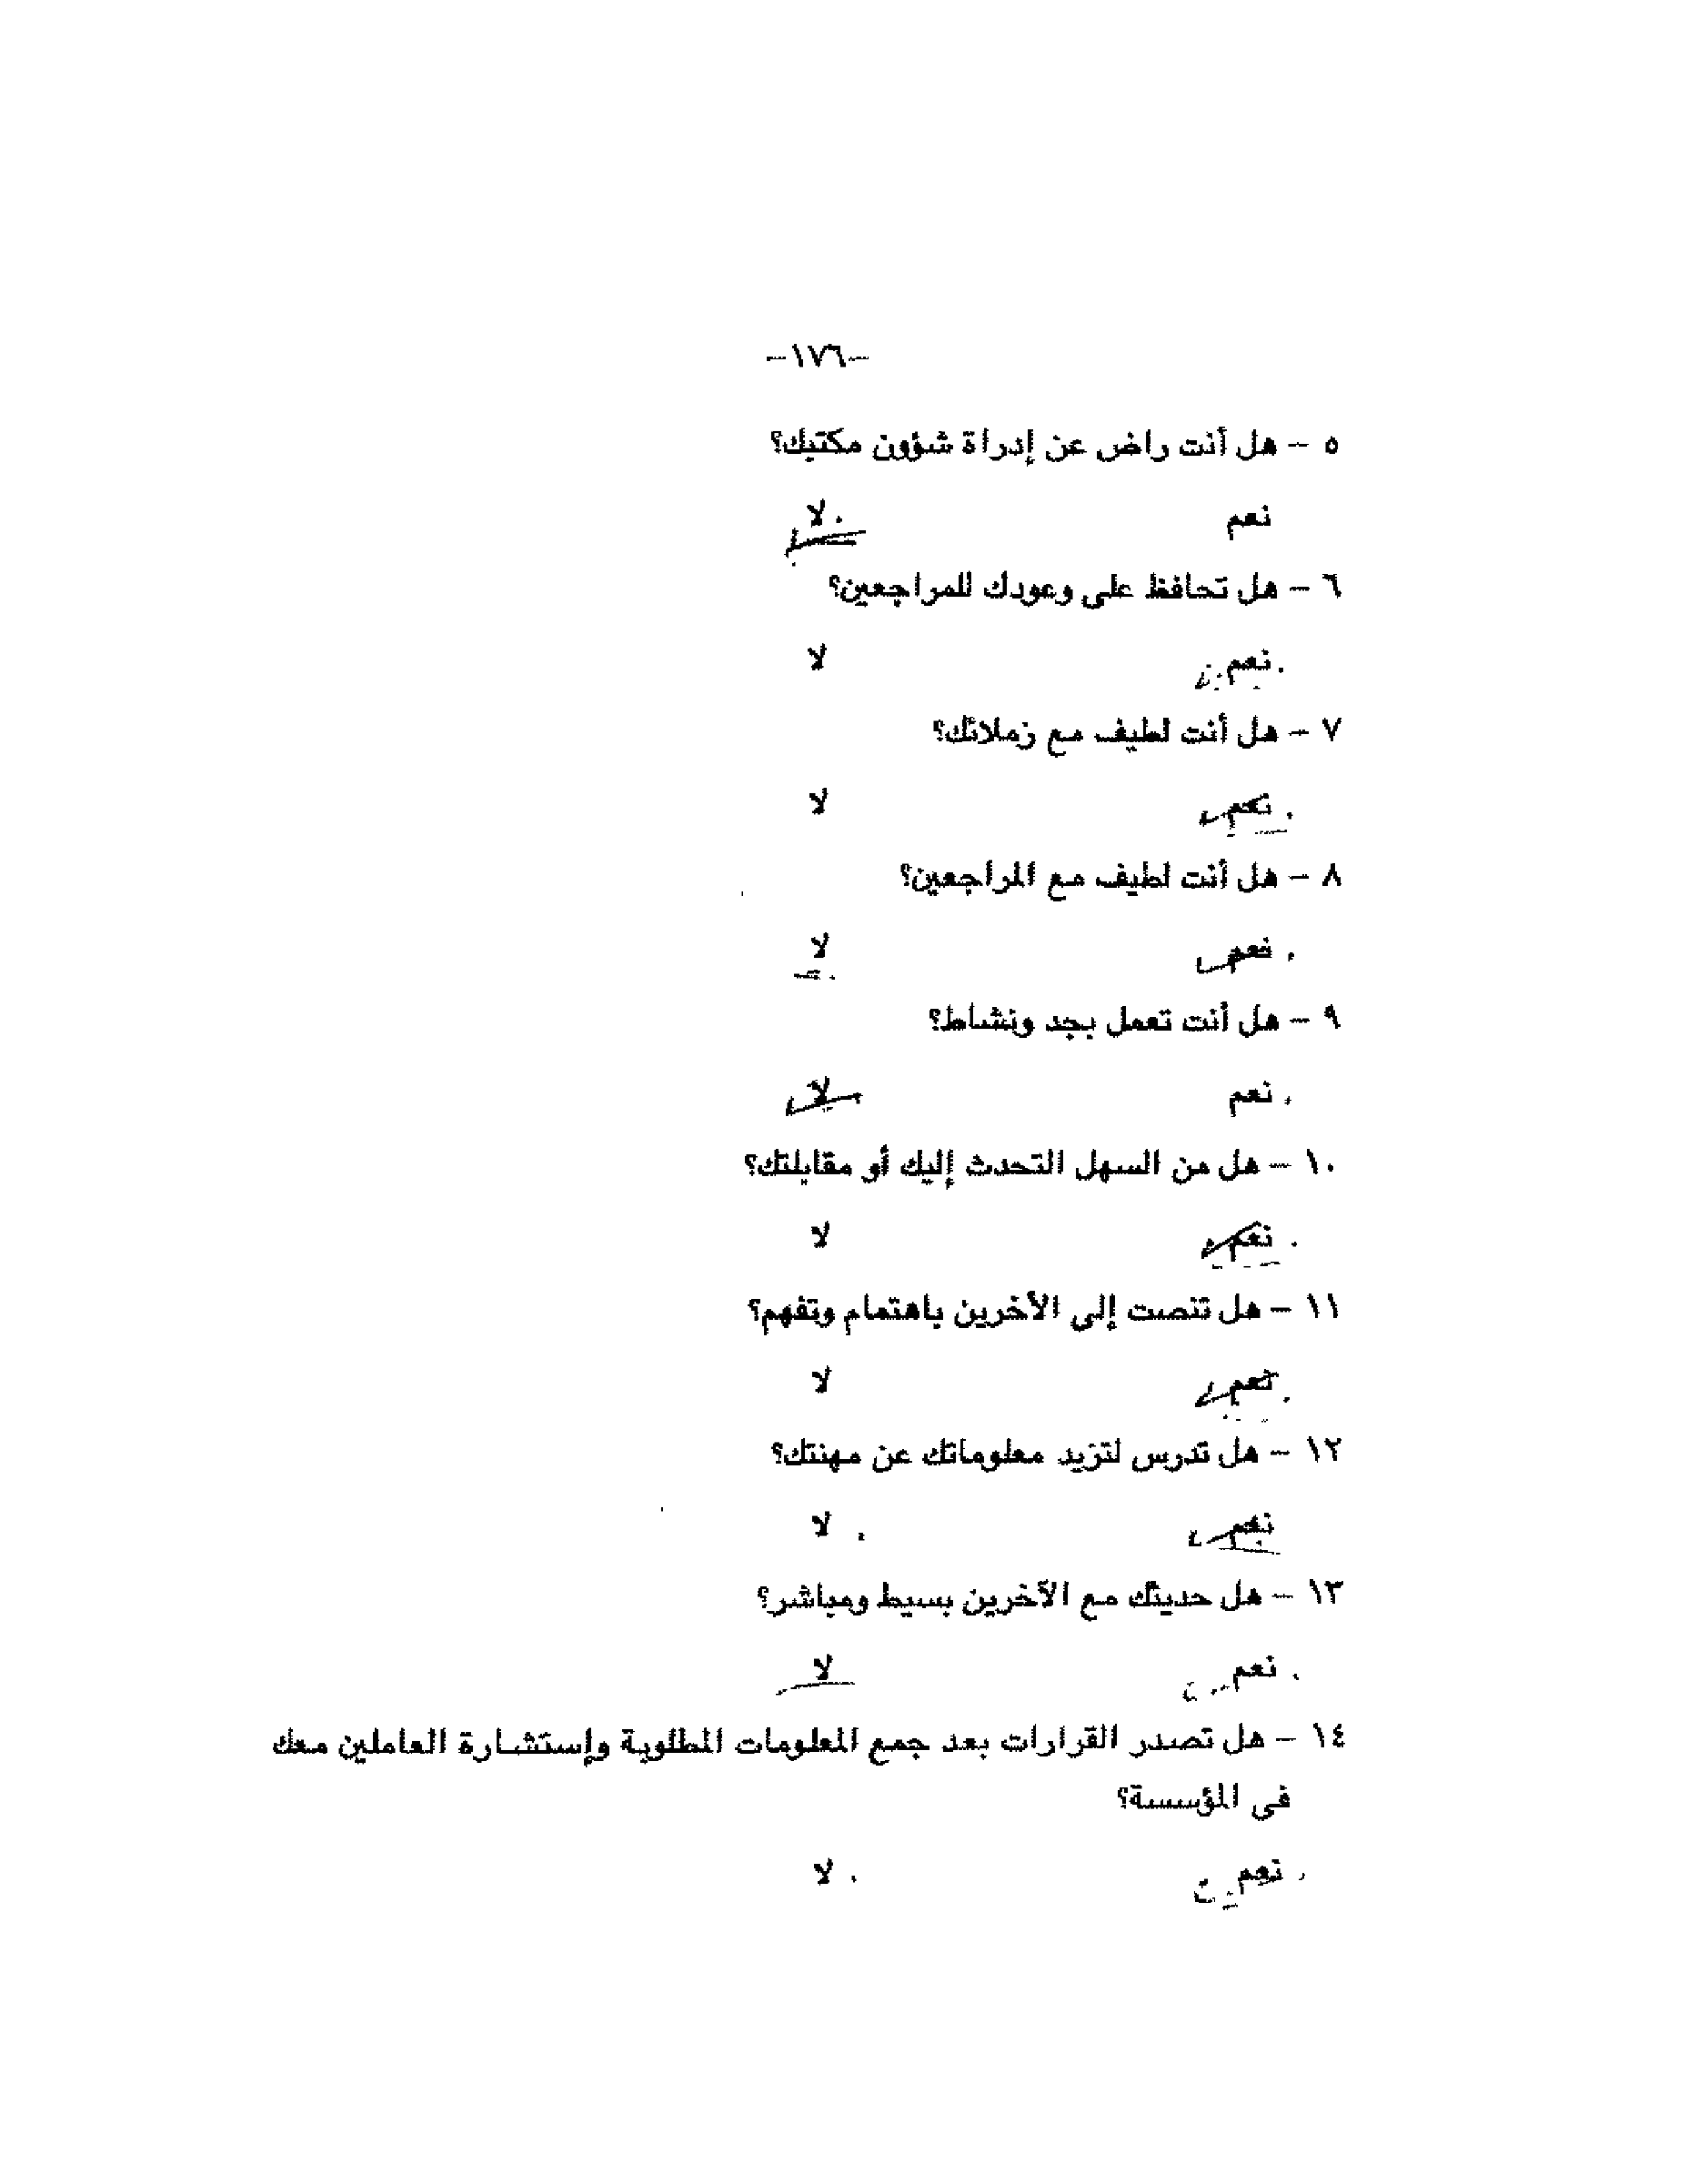 -١٧٦-
٥ - هل أنت راض عن إدراة شؤون مكتبك؟
نعم لا
٦ - هل تحافظ على وعودك للمراجعين؟
نعم لا
٧ - هل أنت لطيف مع زملائك؟
نعم لا
٨ - هل أنت لطيف مع المراجعين؟
نعم لا
٩ - هل أنت تعمل بجد ونشاط؟
نعم لا
١٠ - هل من السهل التحدث إليك أو مقابلتك؟
نعم لا
١١ - هل تنصت إلى الأخرين باهتمام وتفهم؟
نعم لا
١٢ - هل تدرس لتزيد معلوماتك عن مهنتك؟
نعم لا
١٣ - هل حديثك مع الآخرين بسيط ومباشر؟
نعم لا
١٤ - هل تصدر القرارات بعد جمع المعلومات المطلوبة وإستشارة العاملين معك
فى المؤسسة؟
نعم لا